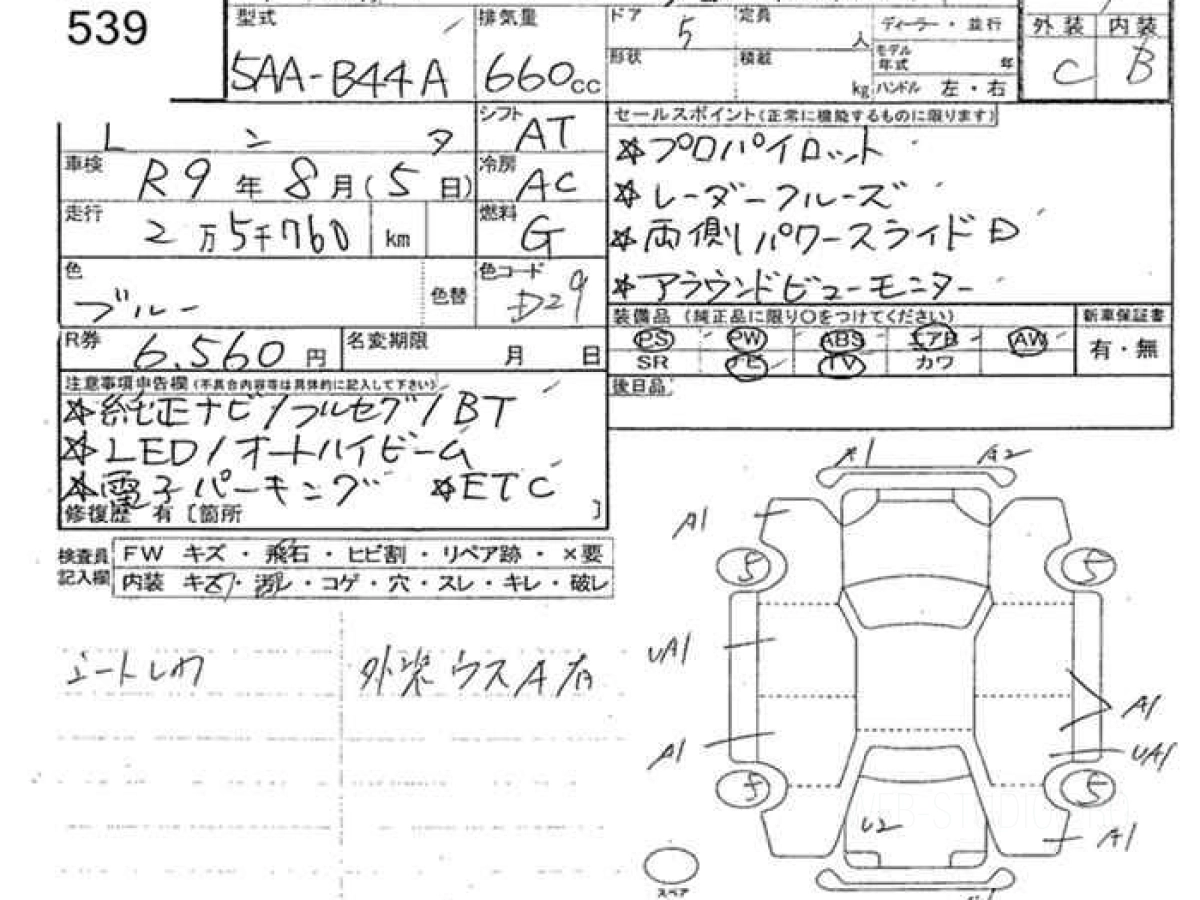 539
型式 排気量 ドア 5 定員 人 ディーラー・並行 外装 内装
5AA-B44A 660cc 形状 積載 kg モデル年式 年 C B
ハンドル 左・右
レンタ シフト AT セールスポイント(正常に機能するものに限ります)
車検 R9年8月(5日) 冷房 AC ☆プロパイロット
走行 2万5千760 km 燃料 G ☆レーダークルーズ
☆両側パワースライドD
色 ブルー 色替 色コード D29 ☆アラウンドビューモニター
装備品 (純正品に限り○をつけてください) 新車保証書
R券 6,560円 名変期限 月 日 PS PW ABS エアB AW 有・無
SR ナビ TV カワ
注意事項申告欄(不具合内容等は具体的に記入して下さい) 後日品
☆純正ナビ/フルセグ/BT
☆LED/オートハイビーム
☆電子パーキング ☆ETC
修復歴 有〔箇所 〕
検査員 FW キズ・飛石・ヒビ割・リペア跡・×要
記入欄 内装 キズ・汚レ・コゲ・穴・スレ・キレ・破レ
シートしわ 外装ウスA有
A1 A2
A1
5 5
UA1
A1
A1
UA1
5 5
U2
A1
スペア